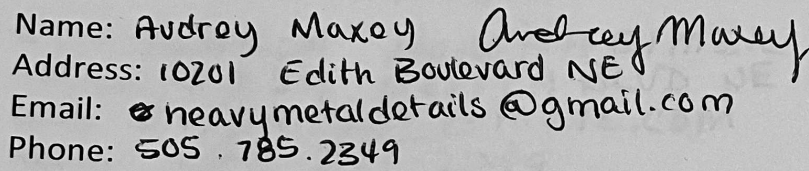 Name: Audrey Maxey Audrey Maxey
Address: 10201 Edith Boulevard NE
Email: heavymetaldetails@gmail.com
Phone: 505.785.2349